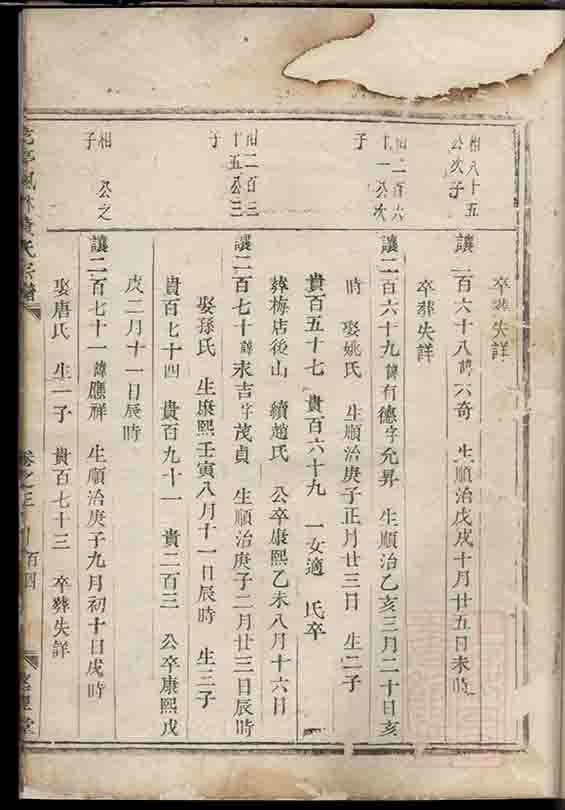 卒葬失詳
相八十五
公次子
讓二百六十八諱六奇 生順治戊戌十月廿五日未時
卒葬失詳
相二百六
十一公次
子
讓二百六十九諱有德字允昇 生順治乙亥三月二十日亥
時 娶姚氏 生順治庚子正月廿三日 生二子
貴百五十七 貴百六十九 一女適 氏卒
葬梅店後山 續趙氏 公卒康熙乙未八月十六日
相二百三
十五公三
子
讓二百七十諱永吉字茂貞 生順治庚子二月廿三日辰時
娶孫氏 生康熙壬寅八月十一日辰時 生三子
貴百七十四 貴百九十一 貴二百三 公卒康熙戊
戌二月十一日辰時
相 公之
子
讓二百七十一諱應祥 生順治庚子九月初十日戌時
娶唐氏 生一子 貴百七十三 卒葬失詳
氏宗譜
卷之三
百四
堂